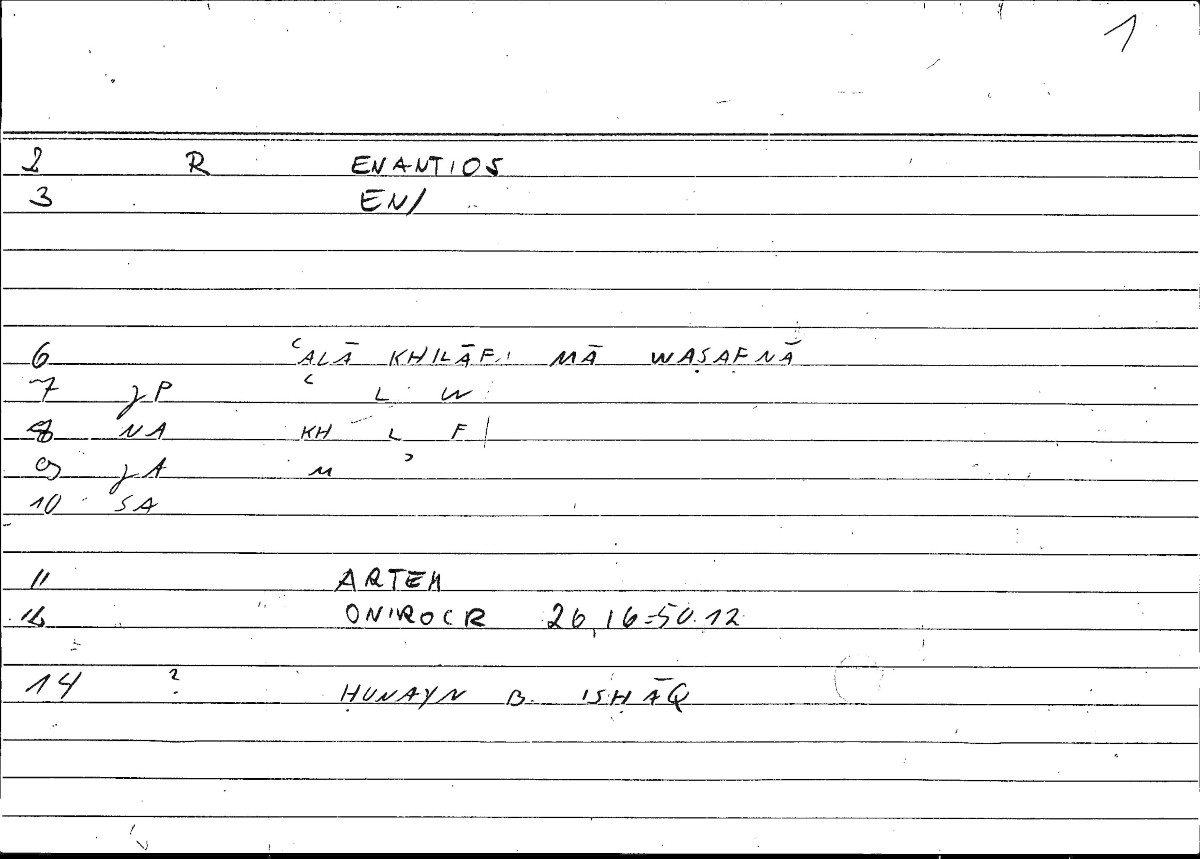 1
2 R ENANTIOS
3 EN/
6 ʿALĀ KHILĀFI MĀ WAṢAFNĀ
7 gP ʿ L W
8 NA KH L F /
9 gA M ʾ
10 SA
11 ARTEM
12 ONIROCR 26,16=50.12
14 ? ḤUNAYN B. ISḤĀQ